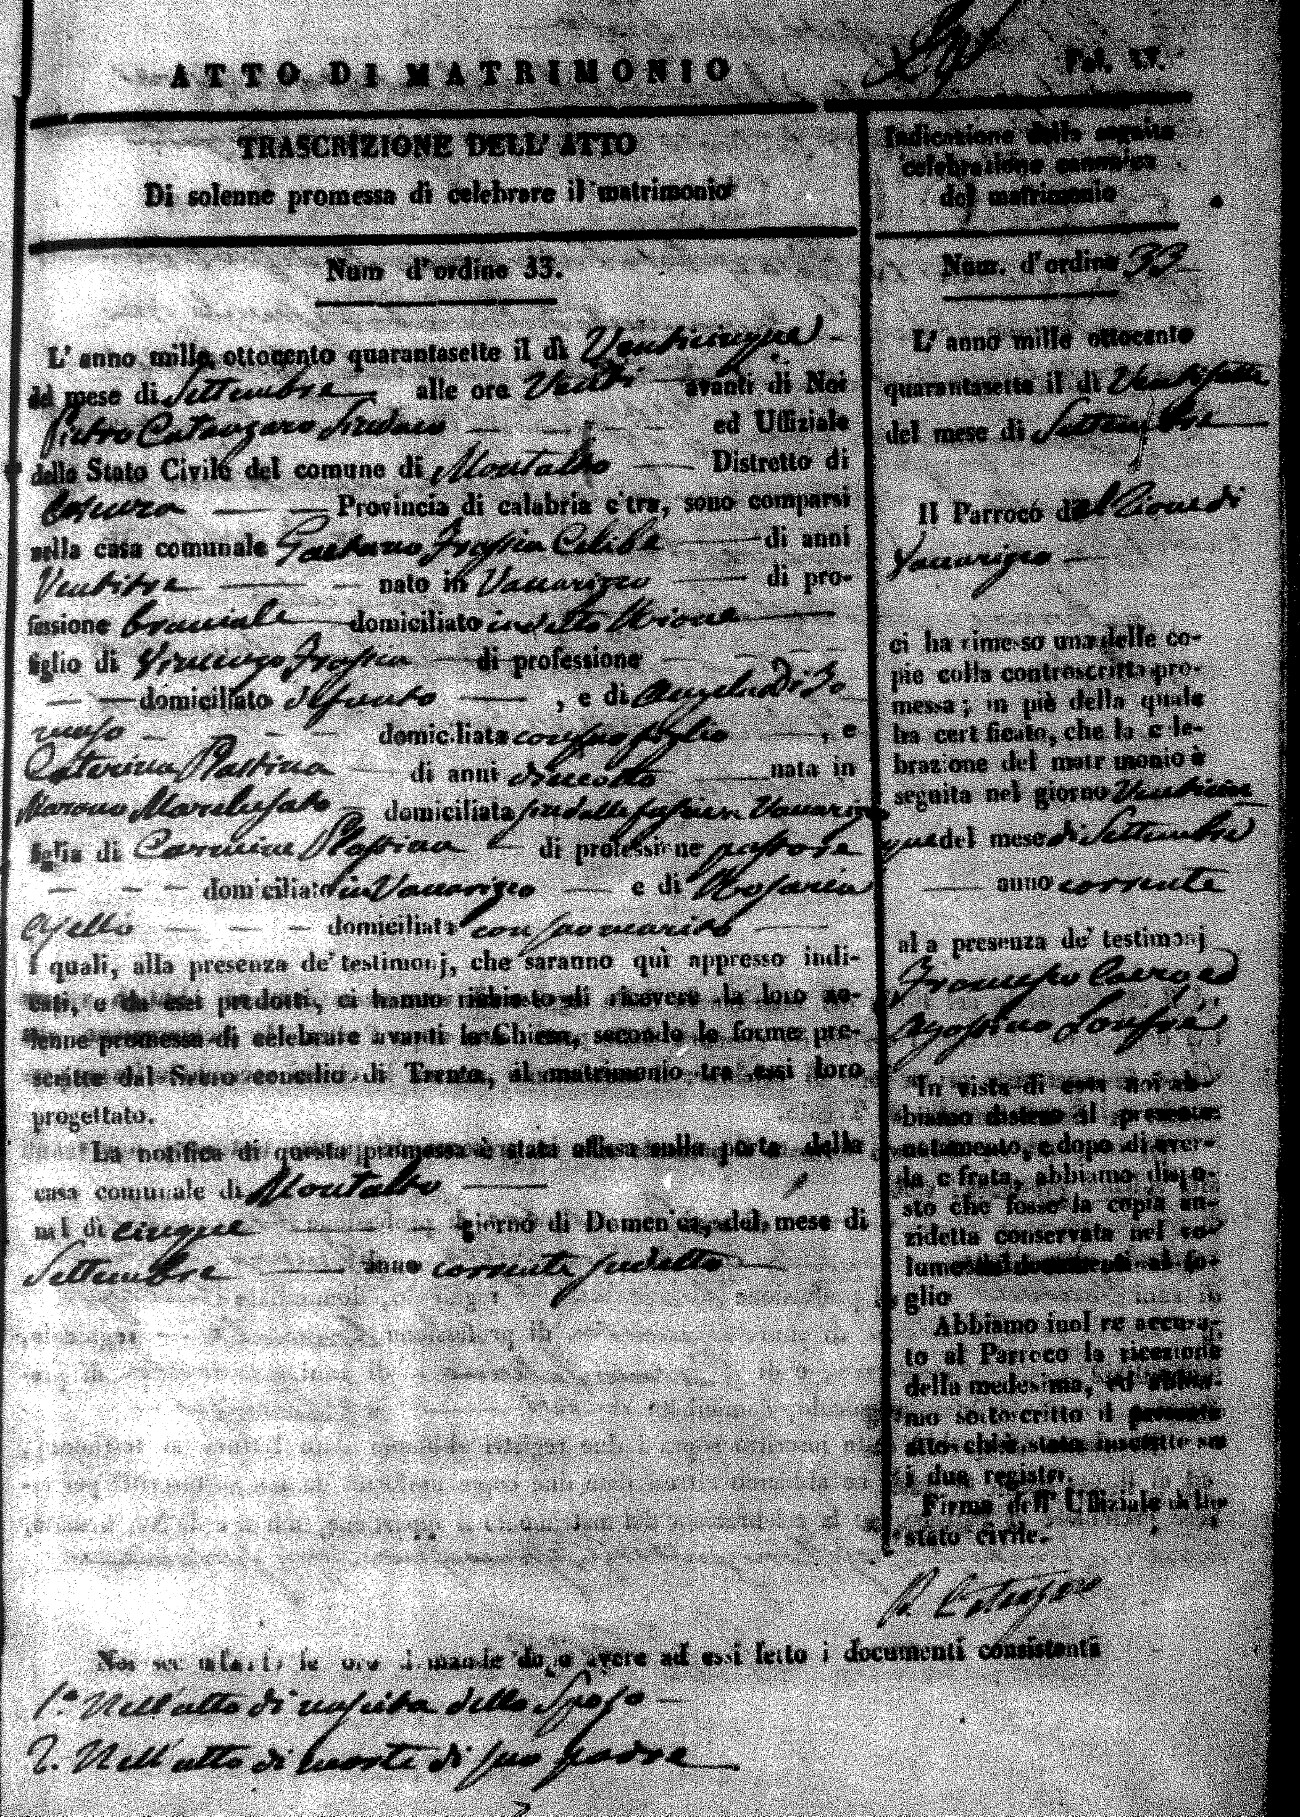 ATTO DI MATRIMONIO
Pat. LV.
TRASCRIZIONE DELL' ATTO
Di solenne promessa di celebrare il matrimonio
Num d'ordine 33.
L' anno mille ottocento quarantasette il dì Venticinque
del mese di Settembre alle ore Venti avanti di Noi
Pietro Catanzaro Sindaco ed Uffiziale
dello Stato Civile del comune di Montalto Distretto di
Cosenza Provincia di calabria citra, sono comparsi
nella casa comunale Gaetano Frassia Celibe di anni
Ventitre nato in Vaccarizzo di pro-
fessione bracciale domiciliato in detto Rione
figlio di Vincenzo Frassia di professione
domiciliato defunto , e di Angela Di Io
domiciliata con suo figlio , e
Caterina Plastina di anni dieciotto nata in
Marano Marchesato domiciliata
figlia di Carmine Plastina di professione pastore
domiciliato in Vaccarizzo e di Rosaria
Ajello domiciliata con suo marito
i quali, alla presenza de' testimonj, che saranno quì appresso indi-
cati, e da essi prodotti, ci hanno richiesto di ricevere la loro so-
lenne promessa di celebrare avanti la Chiesa, secondo le forme pre-
scritte dal Sacro concilio di Trento, il matrimonio tra essi loro
progettato.
La notifica di questa promessa è stata affissa sulla porta della
casa comunale di Montalto
nel dì cinque giorno di Domenica, del mese di
Settembre anno corrente suddetto
Indicazione della seguita
celebrazione canonica
del matrimonio
Num. d'ordine 33
L' anno mille ottocento
quarantasette il dì Ventisette
del mese di Settembre
Il Parroco del Rione di
Vaccarizzo
ci ha rimesso una delle co-
pie colla controscritta pro-
messa; in piè della quale
ha certificato, che la cele-
brazione del matrimonio è
seguita nel giorno Venticin
que del mese di Settembre
anno corrente
alla presenza de' testimonj
Francesco Cairo ed
Agostino
In vista di essa noi ab-
biamo disteso il presente
notamento, e dopo di aver-
la cifrata, abbiamo dispo-
sto che fosse la copia an-
zidetta conservata nel vo-
lume dei documenti al fo-
glio
Abbiamo inoltre accusa-
to al Parroco la ricezione
della medesima, ed abbia-
mo sottoscritto il presente
atto ch'è stato inscritto su
i due registri.
Firma dell' Uffiziale dello
stato civile.
P. Catanzaro
Noi secondando le loro dimande dopo avere ad essi letto i documenti consistenti
1.° Nell'atto di nascita dello Sposo
2. Nell'atto di morte di suo padre